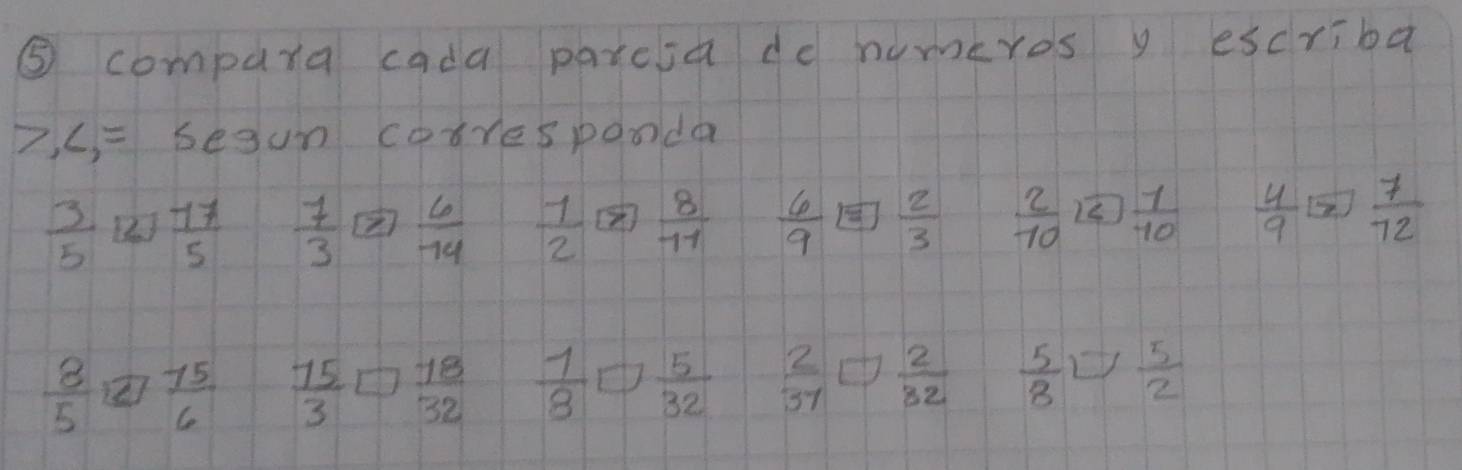 ⑤ compara cada pareja de numeros y escriba
>,<,= segun corresponda
3/5 [<] 17/5 7/3 [>] 6/14 1/2 [>] 8/11 6/9 [=] 2/3 2/10 [<] 1/10 4/9 [>] 7/12
8/5 [<] 15/6 15/3 □ 18/32 1/8 □ 5/32 2/31 □ 2/32 5/8 □ 5/2